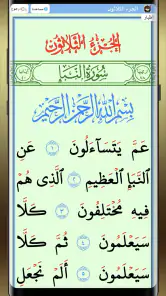 الجزء الثلاثون
الجزء الثلاثون
سورة النبإ
بسم الله الرحمن الرحيم
عَمَّ يَتَسَآءَلُونَ ١ عَنِ
ٱلنَّبَإِ ٱلْعَظِيمِ ٢ ٱلَّذِى هُمْ
فِيهِ مُخْتَلِفُونَ ٣ كَلَّا
سَيَعْلَمُونَ ٤ ثُمَّ كَلَّا
سَيَعْلَمُونَ ٥ أَلَمْ نَجْعَلِ